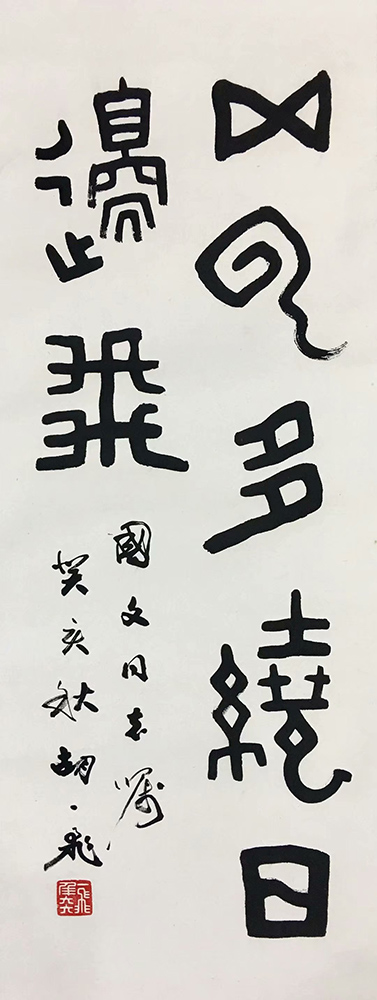 五云多繞日
邊飛
國文同志嘱
癸亥秋胡一飛